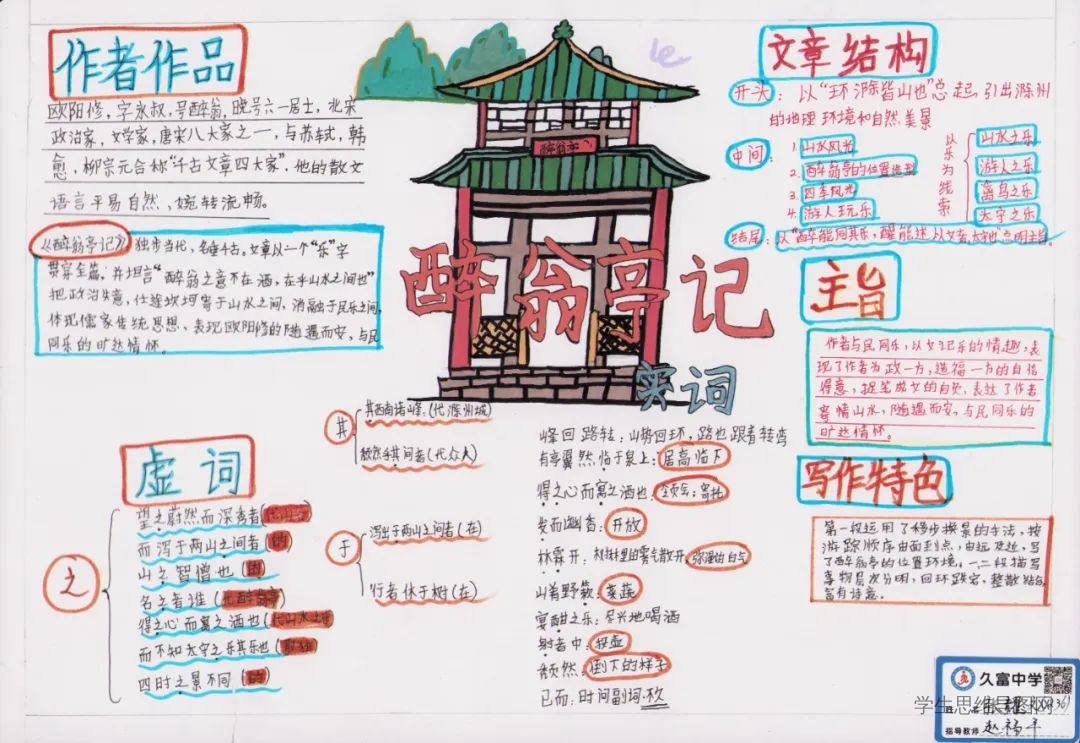 作者作品
欧阳修，字永叔，号醉翁，晚号六一居士，北宋
政治家，文学家，唐宋八大家之一，与苏轼，韩
愈，柳宗元合称"千古文章四大家"。他的散文
语言平易自然、婉转流畅。
《醉翁亭记》独步当代，名垂千古。文章以一个"乐"字
贯穿全篇，并坦言"醉翁之意不在酒，在乎山水之间也"
把政治失意，仕途坎坷寄于山水之间，消融于民乐之间，
体现儒家传统思想，表现欧阳修的随遇而安，与民
同乐的旷达情怀。
醉翁亭
醉翁亭记
文章结构
开头：以"环滁皆山也"总起，引出滁州
的地理环境和自然美景
中间：
1. 山水风光
2. 醉翁亭的位置造型
3. 四季风光
4. 游人玩乐
以乐为线索
山水之乐
游人之乐
禽鸟之乐
太守之乐
结尾：以"醉能同其乐，醒能述以文者，太守也"点明主旨。
主旨
作者与民同乐，以文记乐的情趣，表
现了作者为政一方，造福一方的自信
得意，捉笔成文的自负，表达了作者
寄情山水，随遇而安，与民同乐的
旷达情怀。
写作特色
第一段运用了移步换景的手法，按
游踪顺序由面到点，由远及近，写
了醉翁亭的位置环境。一二段描写
景物层次分明，回环跌宕，整散结合
富有诗意。
虚词
之
望之蔚然而深秀者(代山)
而泻于两山之间者(的)
山之智僧也(的)
名之者谁(代醉翁亭)
得之心而寓之酒也(代山水之乐)
而不知太守之乐其乐也(取独)
四时之景不同(的)
其
其西南诸峰(代滁州城)
杂然乎其间者(代众人)
于
泻出于两山之间者(在)
行者休于树(在)
实词
峰回路转：山势回环，路也跟着转弯
有亭翼然临于泉上：居高临下
得之心而寓之酒也：领会；寄托
发而幽香：开放
林霏开：树林里的雾气散开，弥漫的白气
山肴野蔌：菜蔬
宴酣之乐：尽兴地喝酒
射者中：投壶
颓然：倒下的样子
已而：时间副词，不久
久富中学
学生思维导图网
指导教师 赵福平